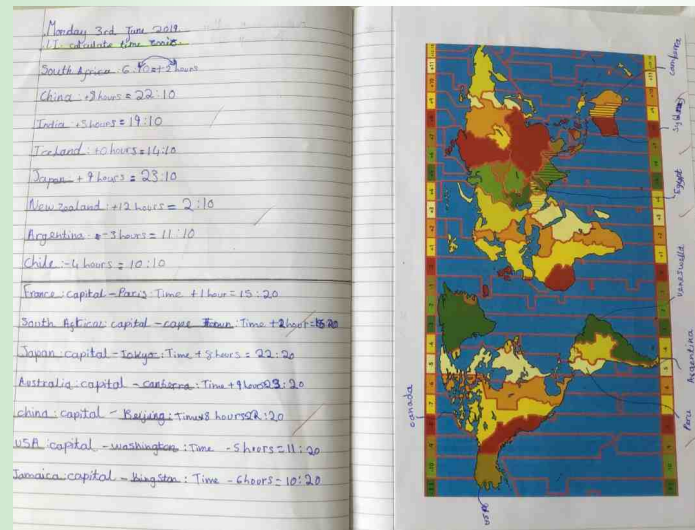 Monday 3rd June 2019
LI. calculate time zones.
South Africa: +2 hours
China: +8 hours = 22:10
India: +5 hours = 19:10
Iceland: +0 hours = 14:10
Japan + 9 hours = 23:10
New Zealand: +12 hours = 2:10
Argentina: -3 hours = 11:10
Chile: -4 hours = 10:10
France: capital - Paris: Time + 1 hour = 15:20
South Africa: capital - cape Town: Time + 2 hours =
Japan: capital - Tokyo: Time + 8 hours = 22:20
Australia: capital - canberra: Time + 9 hours 23:20
china: capital - Beijing: Time +8 hours 22:20
USA: capital - washington: Time - 5 hours = 11:20
Jamaica: capital - kingston: Time - 6 hours = 10:20
canberra
Sydney
Egypt
venezwella
Argentina
Peru
canada
USA